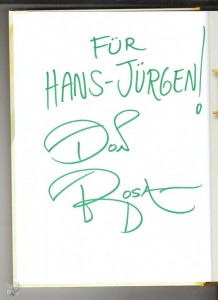 FÜR
HANS-JÜRGEN!
Don
Rosa